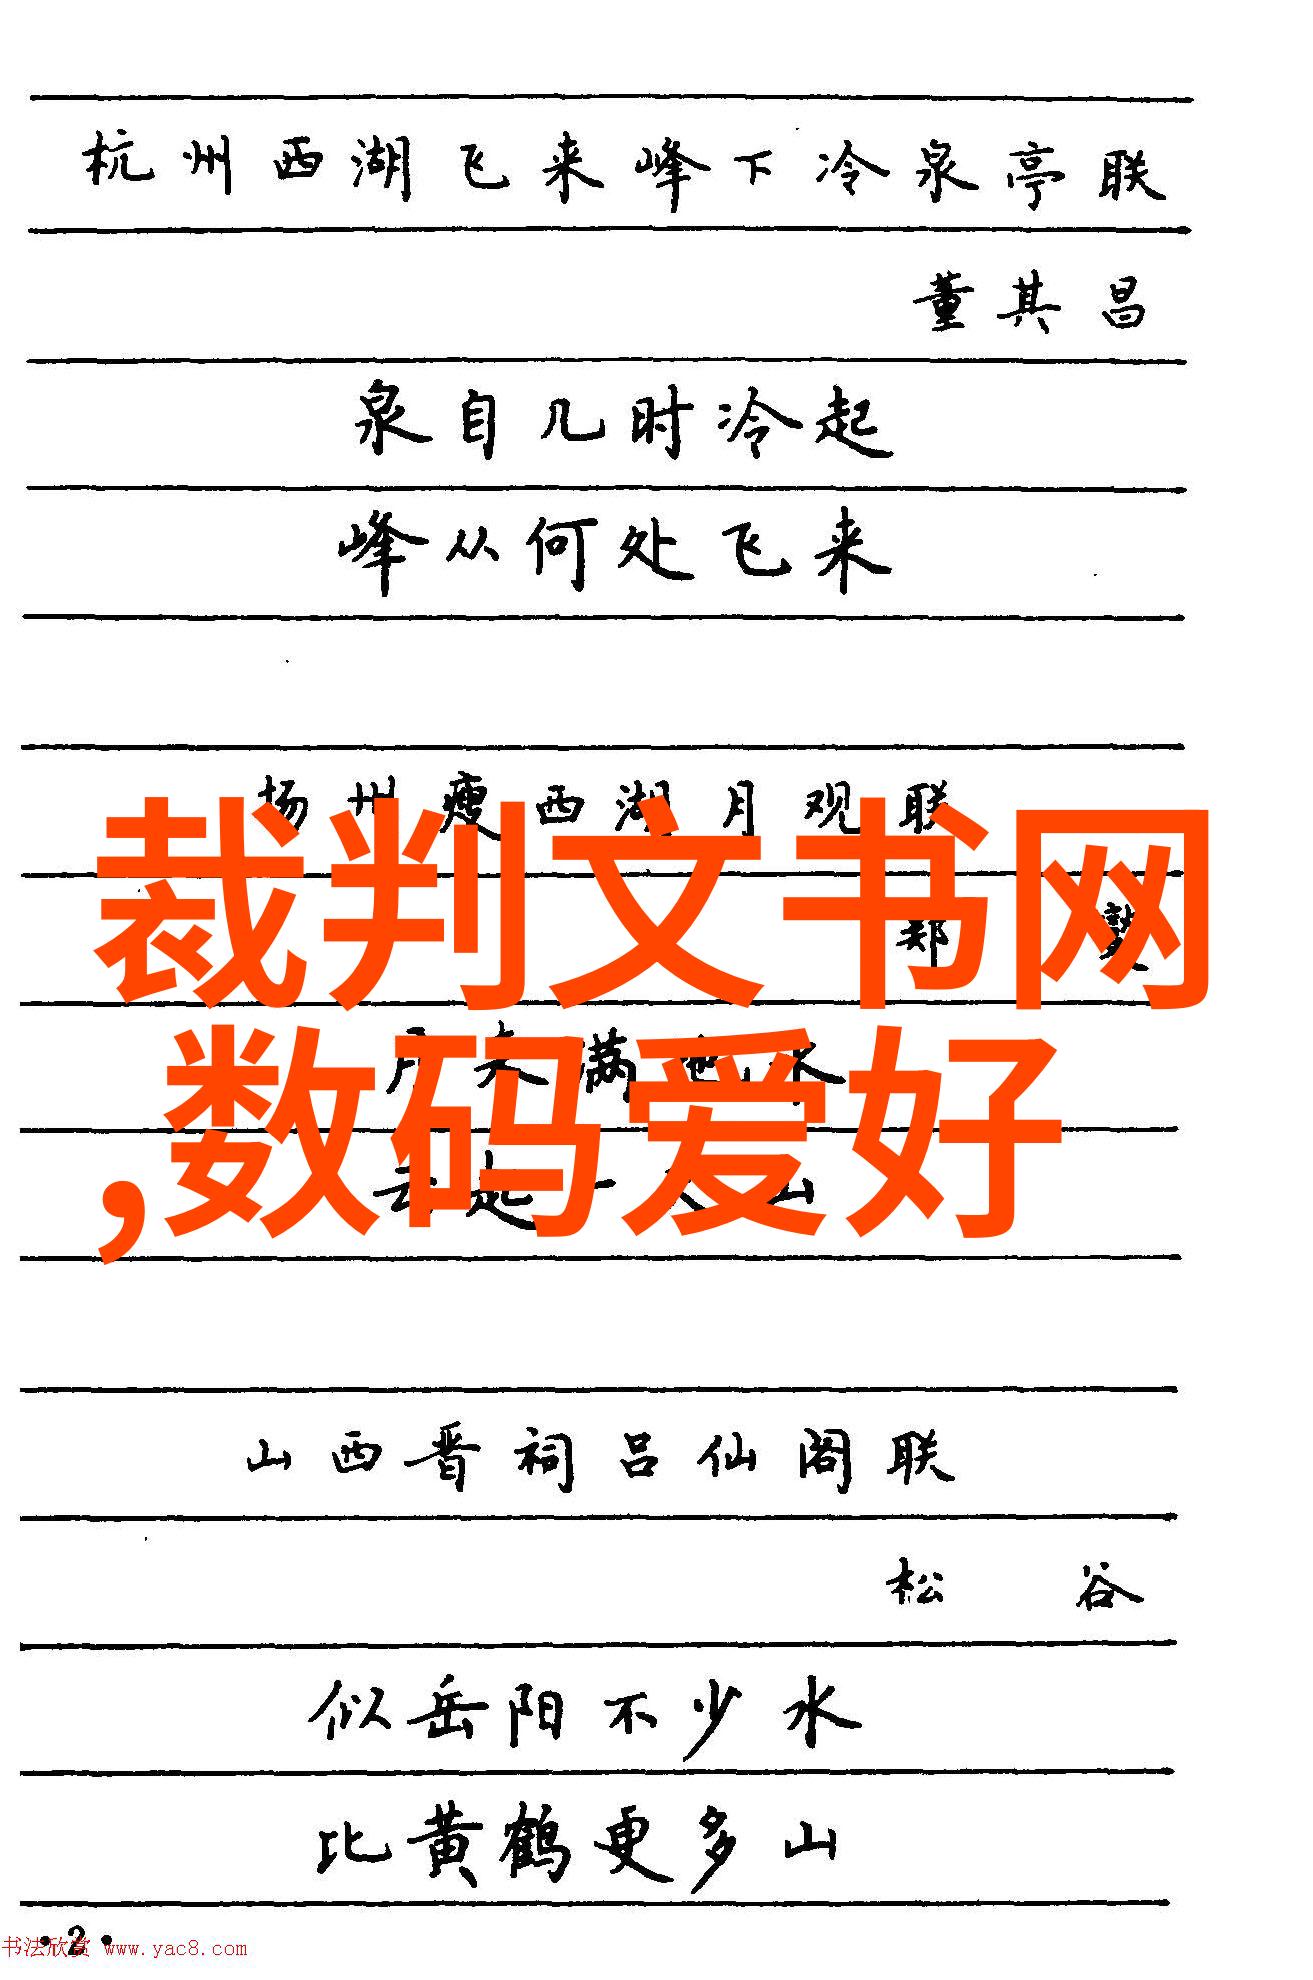 杭州西湖飞来峰下冷泉亭联
董其昌
泉自几时冷起
峰从何处飞来
扬州瘦西湖月观联
郑燮
裁判文书网
月来满地水
,数码爱好
云起一天山
山西晋祠吕仙阁联
松谷
似岳阳不少水
比黄鹤更多山
·2·
书法欣赏 www.yac8.com